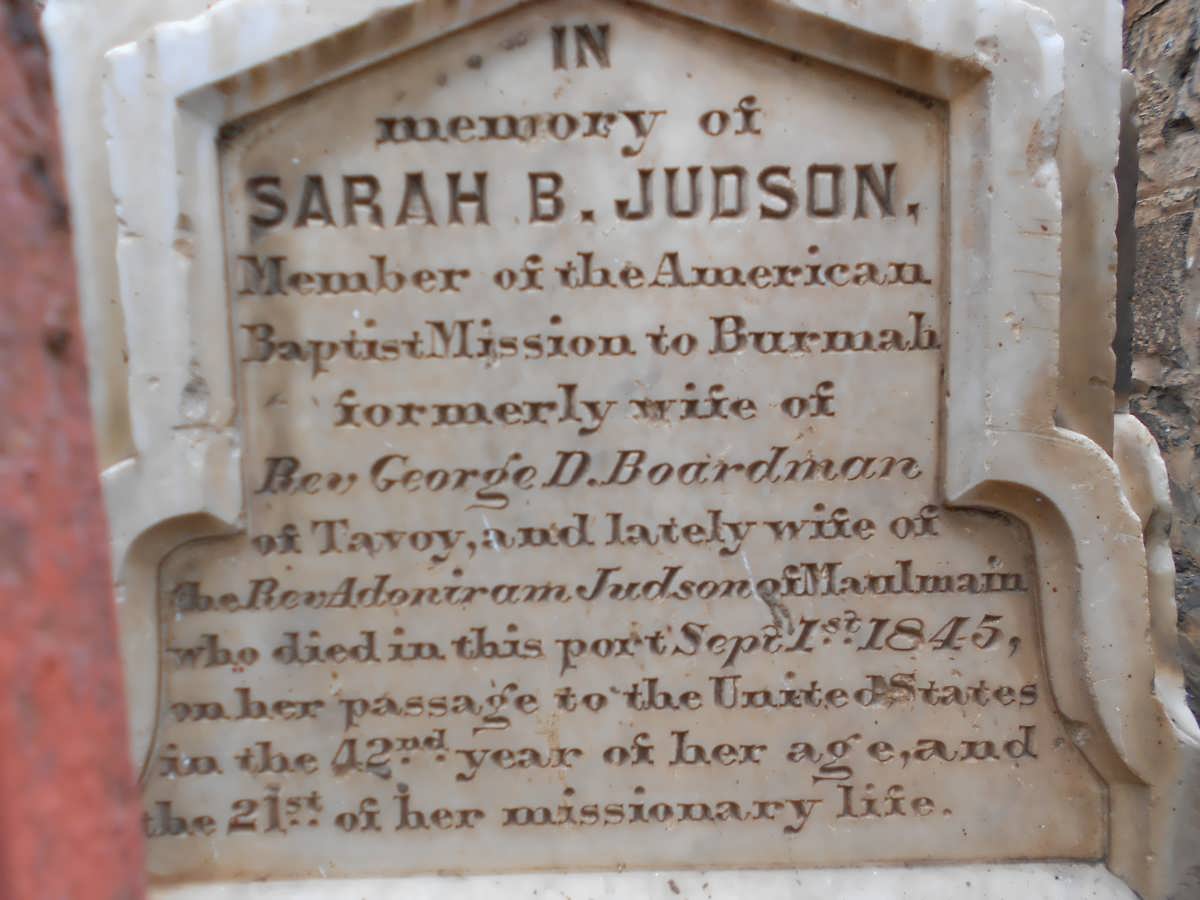 IN
memory of
SARAH B. JUDSON,
Member of the American
Baptist Mission to Burmah
formerly wife of
Rev George D. Boardman
of Tavoy, and lately wife of
the Rev Adoniram Judson of Maulmain
who died in this port Sept 1st. 1845,
on her passage to the United States
in the 42nd year of her age, and
the 21st. of her missionary life.